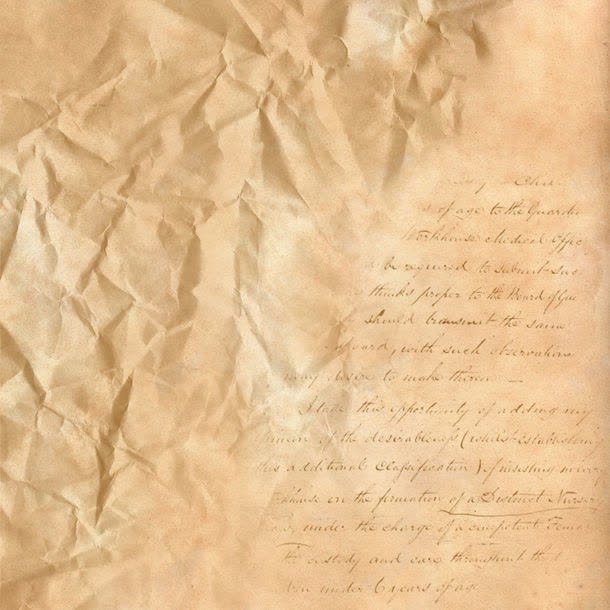 Chil
of age to the Guardi
Workhouse Medical Offic
be required to submit suc
thinks proper to the Board of Gua
should transmit the same
board, with such observations
may desire to make thereon —
I take this opportunity of adding my
opinion of the desirableness (whilst establishing
this additional Classification) of insisting in every
khouse on the formation of a Distinct Nursery
under the charge of a competent Female
the custody and care throughout the
dren under 6 years of age